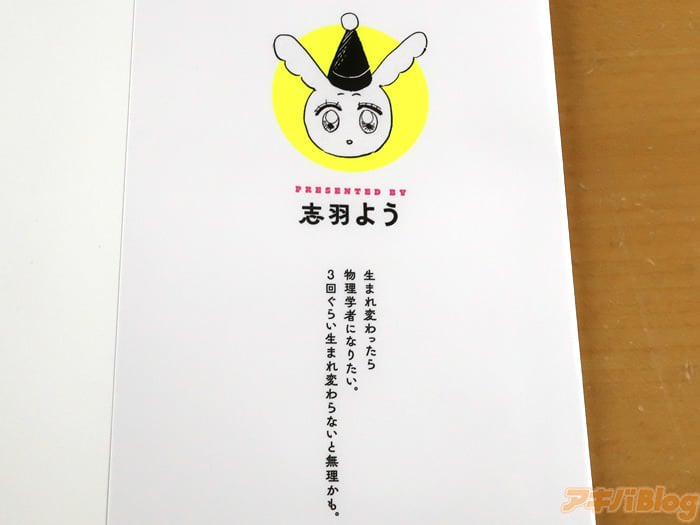 PRESENTED BY
志羽よう
生まれ変わったら
物理学者になりたい。
3回ぐらい生まれ変わらないと無理かも。
アキバBlog